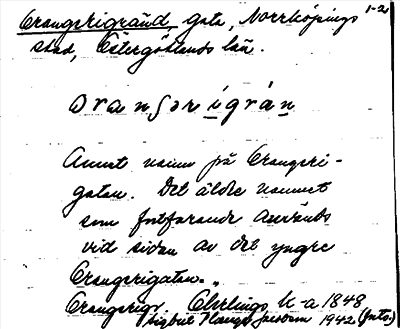 1-2
Orangerigränd, gata, Norrköpings
stad, Östergötlands län.
oranʃəri̱grán̠
Annat namn på Orangeri-
gatan. Det äldre namnet
som fortfarande används
vid sidan av det yngre
Orangerigatan.
Orangerigr. Ehrlings k-a 1848
1942